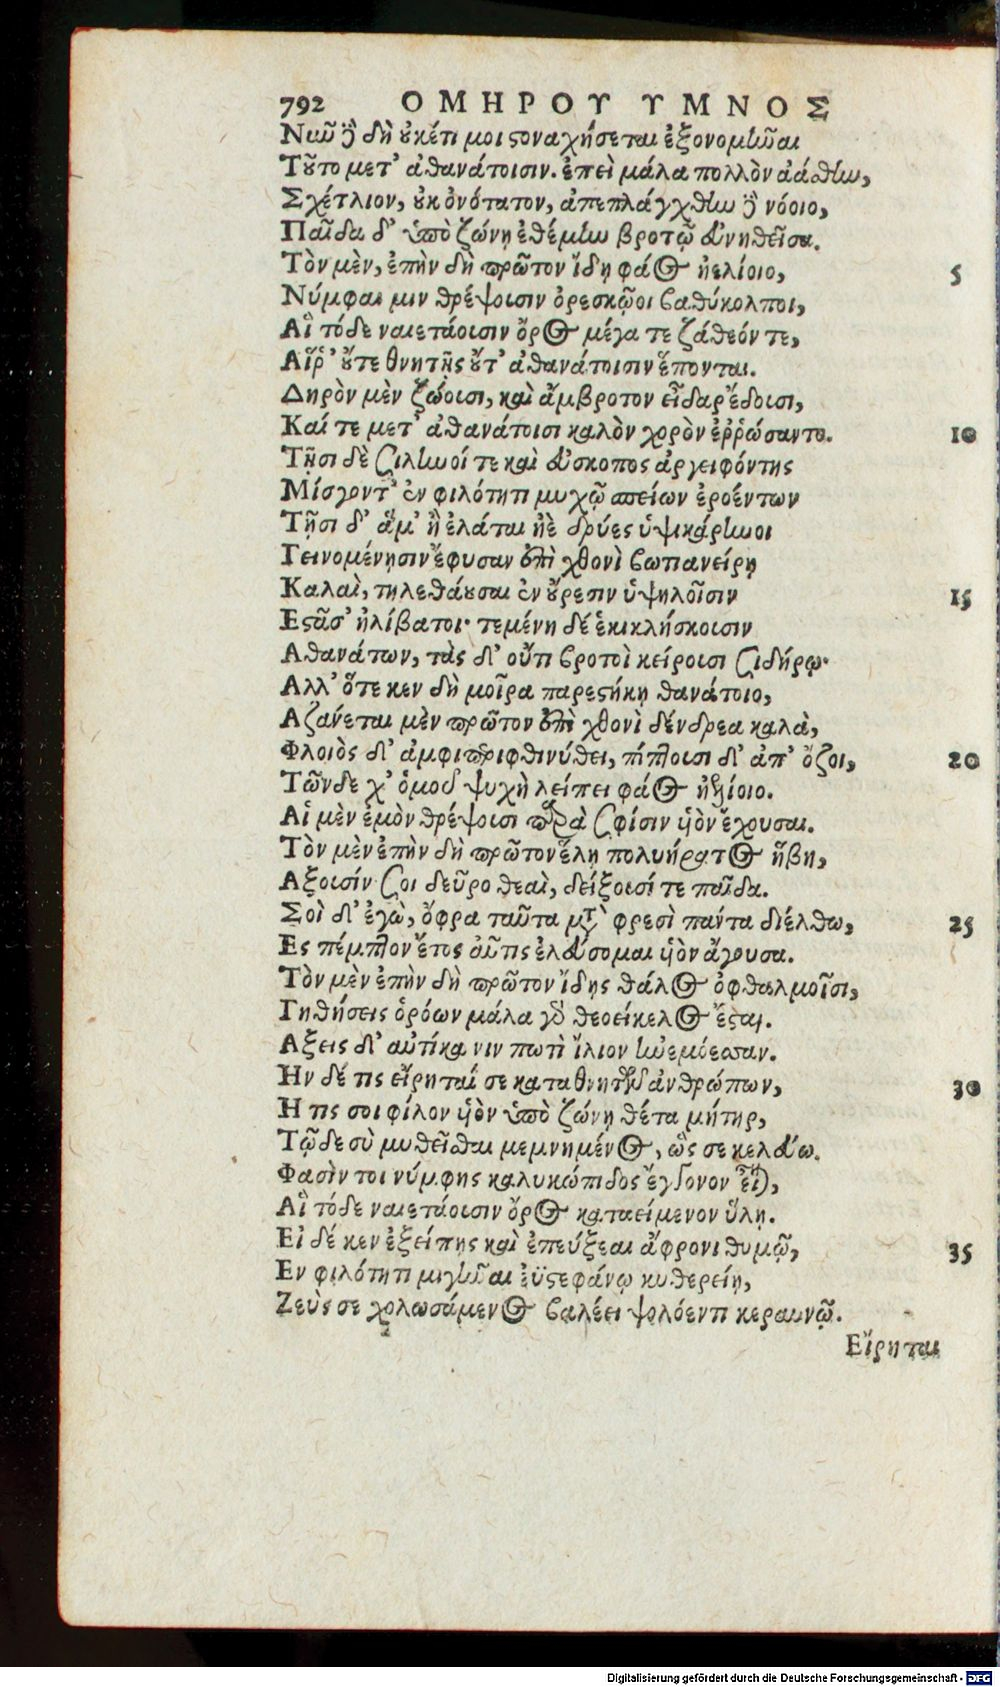 792 ΟΜΗΡΟΥ ΥΜΝΟΣ
Νωῦ δὲ δὴ οὐκέτι μοι στοναχήσεται ἐξονομῆναι
Τοῦτο μετ' ἀθανάτοισιν. ἐπεὶ μάλα πολλὸν ἀάσθην,
Σχέτλιον, οὐκ ὀνότατον, ἀπεπλάγχθην δὲ νόοιο,
Παῖδα δ' ὑπὸ ζώνῃ ἐθέμην βροτῷ εὐνηθεῖσα.
Τὸν μὲν, ἐπὴν δὴ πρῶτον ἴδῃ φάος ἠελίοιο, 5
Νύμφαι μιν θρέψουσιν ὀρεσκῷοι βαθύκολποι,
Αἳ τόδε ναιετάουσιν ὄρος μέγα τε ζάθεόν τε,
Αἵῥ' οὔτε θνητῆς οὔτ' ἀθανάτοισιν ἕπονται.
Δηρὸν μὲν ζώουσι, καὶ ἄμβροτον εἶδαρ ἔδουσι,
Καί τε μετ' ἀθανάτοισι καλὸν χορὸν ἐῤῥώσαντο. 10
Τῇσι δὲ σιληνοί τε καὶ εὔσκοπος ἀργειφόντης
Μίσγοντ' ἐν φιλότητι μυχῷ σπείων ἐροέντων
Τῇσι δ' ἅμ' ἢ ἐλάται ἠὲ δρύες ὑψικάρηνοι
Γεινομένῃσιν ἔφυσαν ἐπὶ χθονὶ βωτιανείρῃ
Καλαὶ, τηλεθάουσαι ἐν οὔρεσιν ὑψηλοῖσιν 15
Εστᾶσ' ἠλίβατοι· τεμένη δέ ἑκικλήσκουσιν
Αθανάτων, τὰς δ' οὔτι βροτοὶ κείρουσι σιδήρῳ·
Αλλ' ὅτε κεν δὴ μοῖρα παρεστήκῃ θανάτοιο,
Αζάνεται μὲν πρῶτον ἐπὶ χθονὶ δένδρεα καλὰ,
Φλοιὸς δ' ἀμφιπεριφθινύθει, πίπτουσι δ' ἀπ' ὄζοι, 20
Τῶνδε χ' ὁμοῦ ψυχὴ λείπει φάος ἠελίοιο.
Αἱ μὲν ἐμὸν θρέψουσι παρὰ σφίσιν υἱὸν ἔχουσαι.
Τὸν μὲν ἐπὴν δὴ πρῶτον ἕλῃ πολυήρατος ἥβη,
Αξουσίν σοι δεῦρο θεαὶ, δείξουσί τε παῖδα.
Σοὶ δ' ἐγὼ, ὄφρα ταῦτα μετὰ φρεσὶ πάντα διέλθω, 25
Ες πέμπτον ἔτος αὖτις ἐλεύσομαι υἱὸν ἄγουσα.
Τὸν μὲν ἐπὴν δὴ πρῶτον ἴδῃς θάλος ὀφθαλμοῖσι,
Γηθήσεις ὁρόων μάλα γὰρ θεοείκελος ἔσται.
Αξεις δ' αὐτίκα νιν ποτὶ ἴλιον ἠνεμόεσσαν.
Ην δέ τις εἴρηταί σε καταθνητῶν ἀνθρώπων, 30
Η τις σοι φίλον υἱὸν ὑπὸ ζώνῃ θέτο μήτηρ,
Τῷδε σὺ μυθεῖσθαι μεμνημένος, ὥς σε κελεύω.
Φασίν τοι νύμφης καλυκώπιδος ἔκγονον εἶναι,
Αἳ τόδε ναιετάουσιν ὄρος καταείμενον ὕλῃ.
Εἰ δέ κεν ἐξείπῃς καὶ ἐπεύξεαι ἄφρονι θυμῷ, 35
Εν φιλότητι μιγῆναι ἐϋστεφάνῳ κυθερείῃ,
Ζεύς σε χολωσάμενος βαλέει ψολόεντι κεραυνῷ.
Εἴρηται
Digitalisierung gefördert durch die Deutsche Forschungsgemeinschaft - DFG